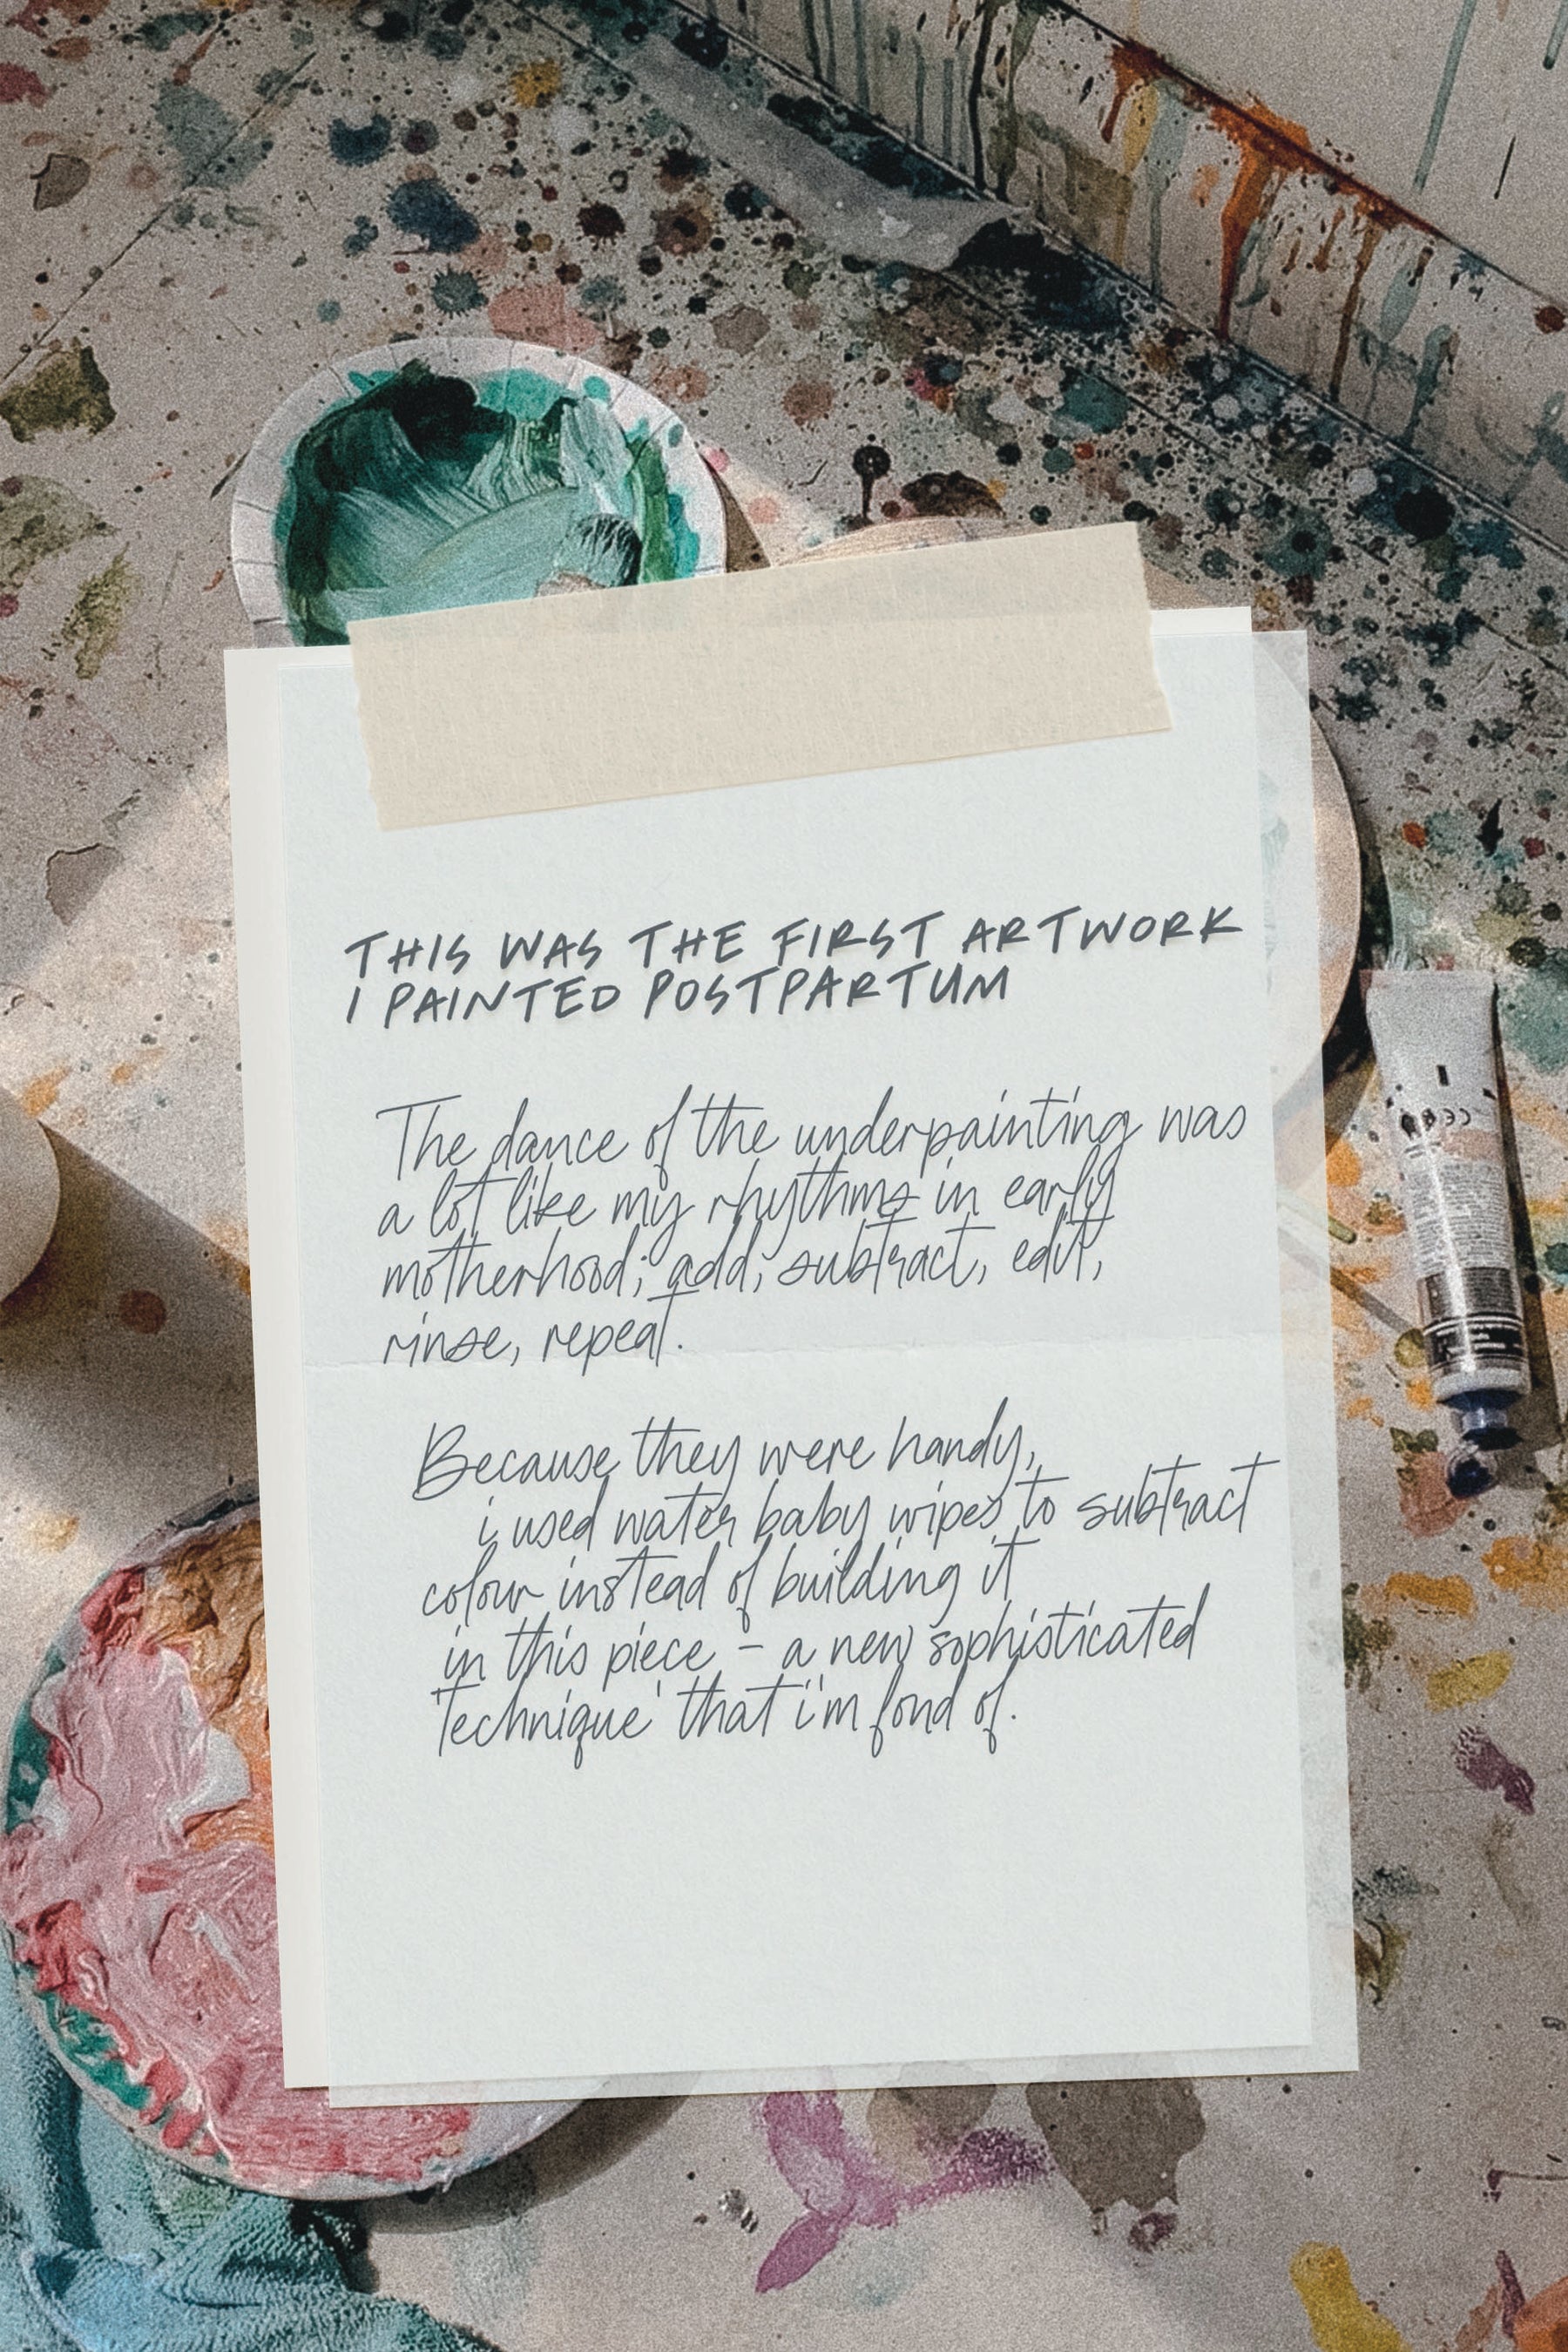 THIS WAS THE FIRST ARTWORK
I PAINTED POSTPARTUM
The dance of the underpainting was
a lot like my rhythms in early
motherhood; add, subtract, edit,
rinse, repeat.
Because they were handy,
i used water baby wipes to subtract
colour instead of building it
in this piece - a new sophisticated
'technique' that i'm fond of.